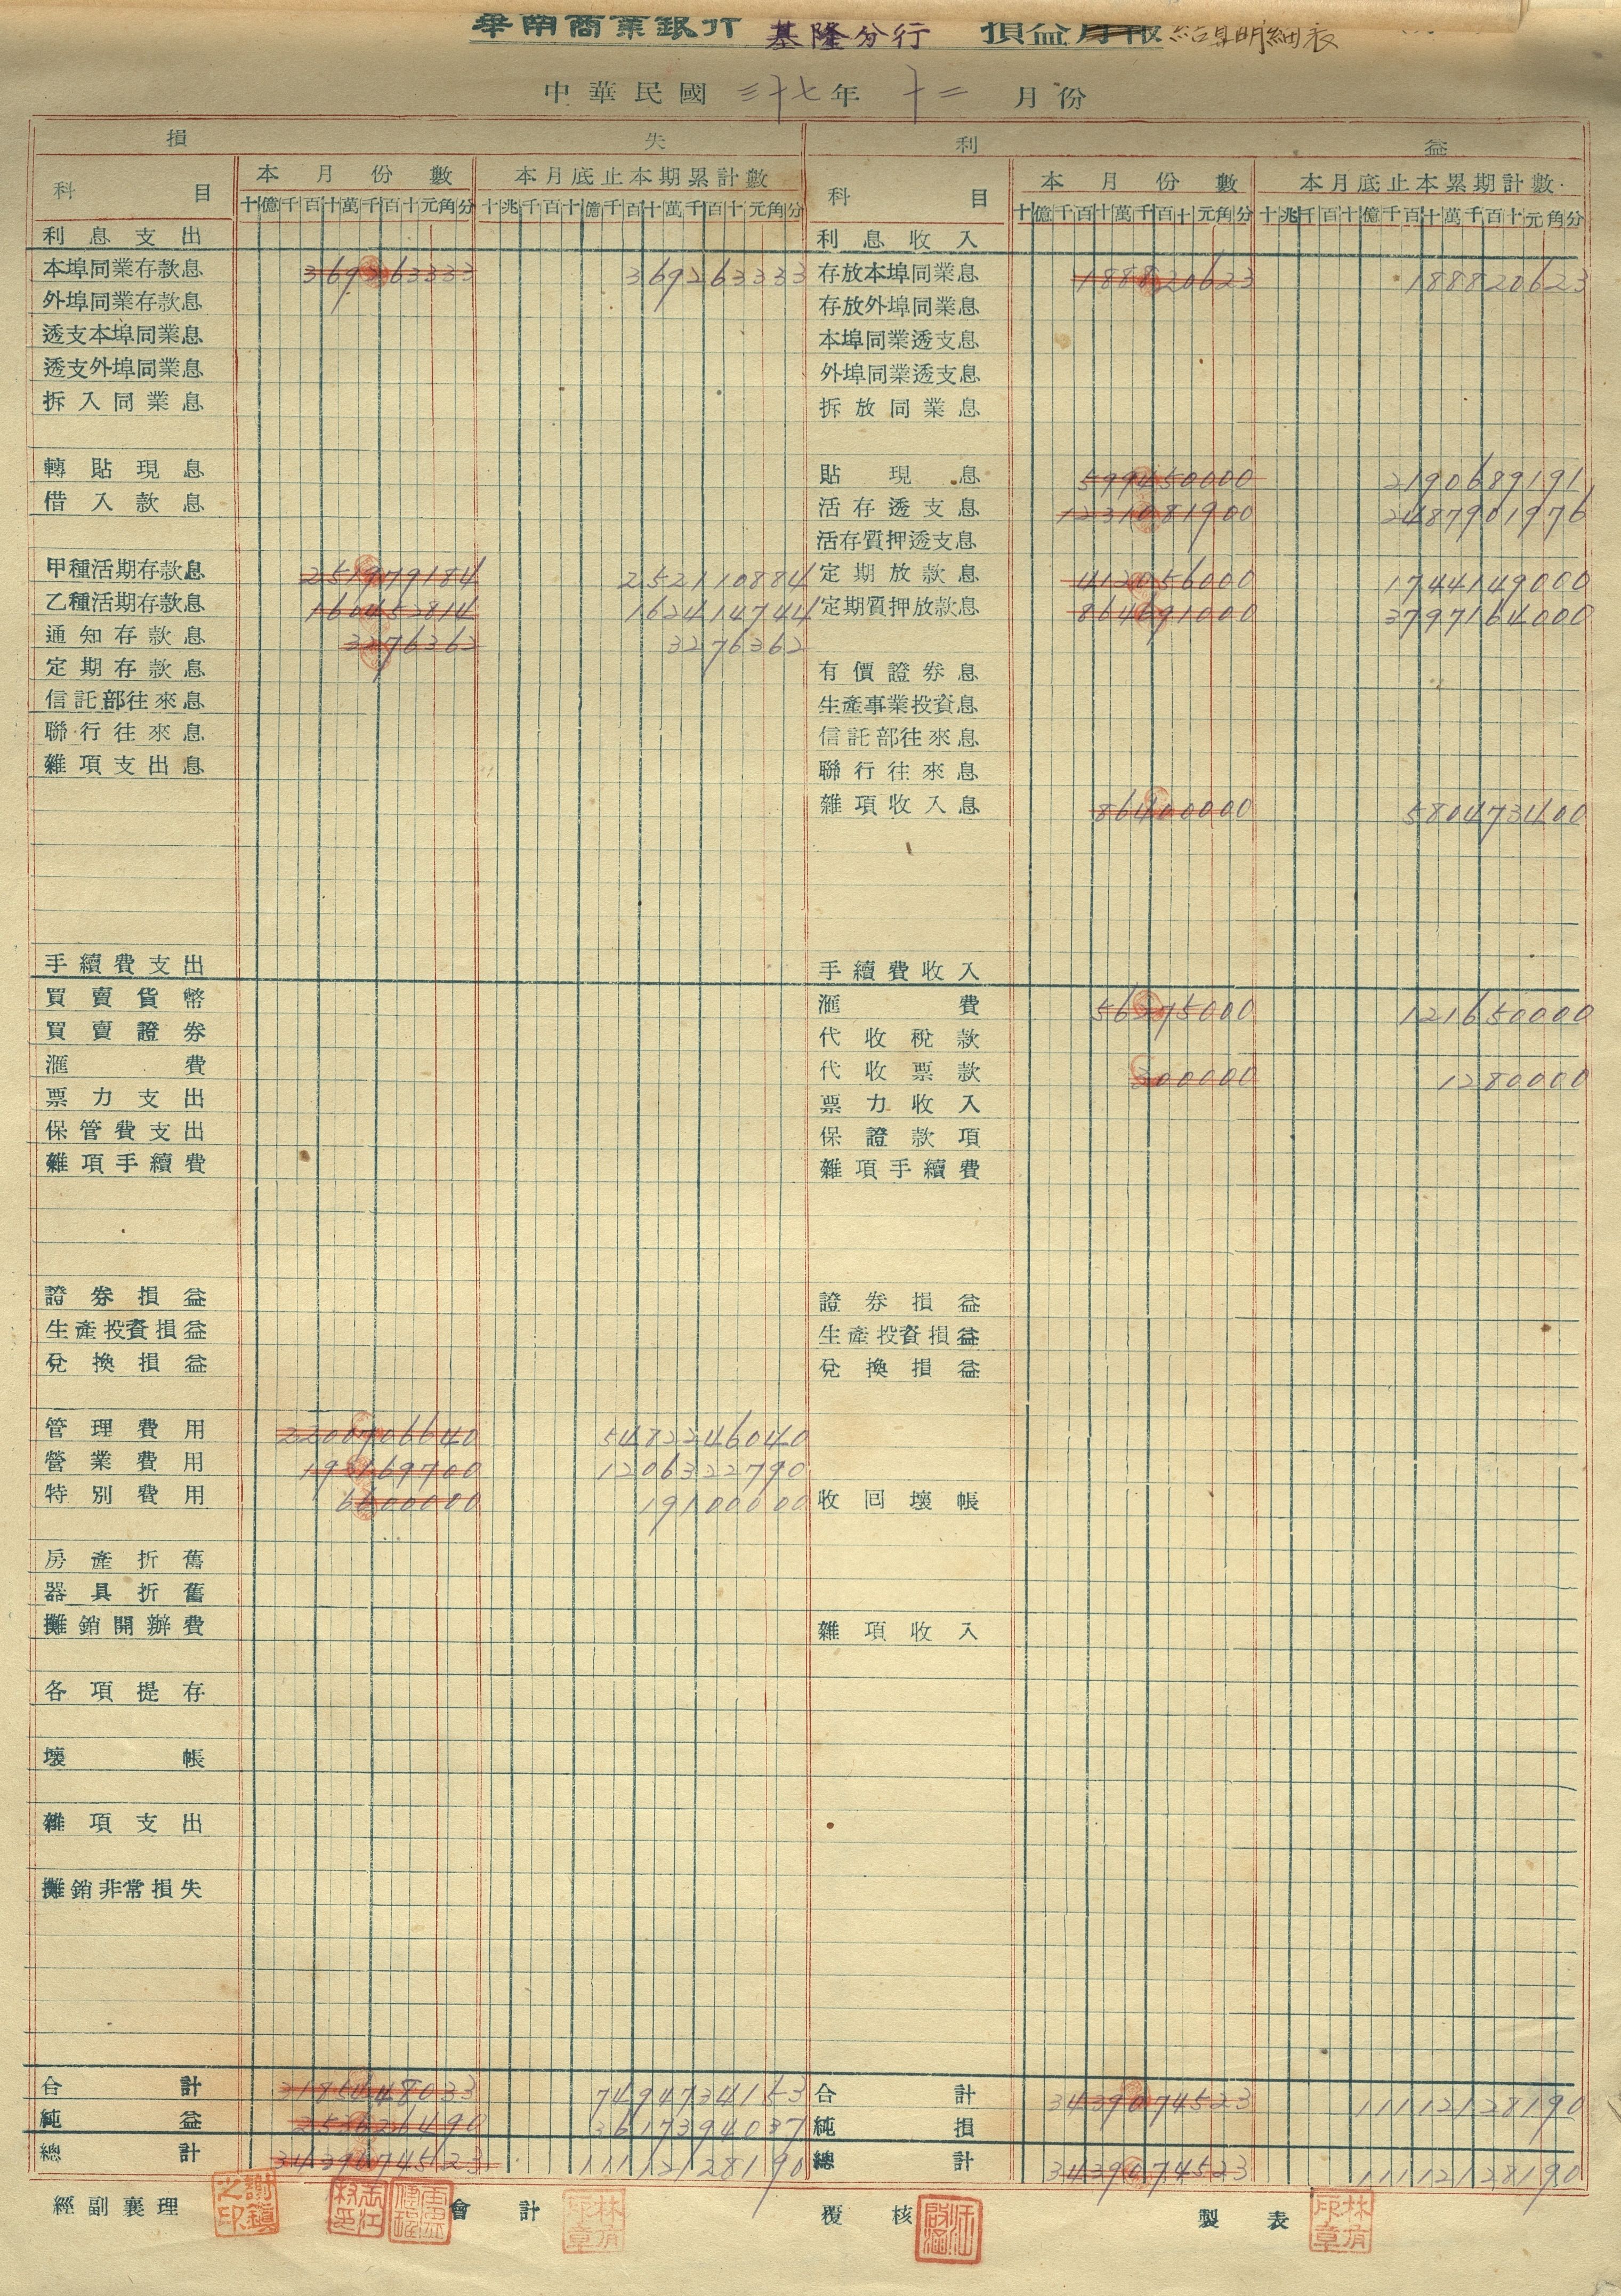 華南商業銀行 基隆分行 損益月報 結算明細表
中華民國 三十七年 十二 月份
損 失 利 益
科 目 本月份數 本月底止本期累計數 科 目 本月份數 本月底止本累期計數
十億千百十萬千百十元角分 十兆千百十億千百十萬千百十元角分 十億千百十萬千百十元角分 十兆千百十億千百十萬千百十元角分
利息支出 利息收入
本埠同業存款息 369263333 369263333 存放本埠同業息 188820623 188820623
外埠同業存款息 存放外埠同業息
透支本埠同業息 本埠同業透支息
透支外埠同業息 外埠同業透支息
拆入同業息 拆放同業息
轉貼現息 貼現息 599450000 2190689191
借入款息 活存透支息 1231081900 2487901976
活存質押透支息
甲種活期存款息 251979184 252110884 定期放款息 412056000 1744149000
乙種活期存款息 162414744 定期質押放款息 864691000 3797164000
通知存款息 3276362 3276362
定期存款息 有價證券息
信託部往來息 生產事業投資息
聯行往來息 信託部往來息
雜項支出息 聯行往來息
雜項收入息 86400000 580473400
手續費支出 手續費收入
買賣貨幣 滙費 56275000 121650000
買賣證券 代收稅款
滙費 代收票款 300000 1280000
票力支出 票力收入
保管費支出 保證款項
雜項手續費 雜項手續費
證券損益 證券損益
生產投資損益 生產投資損益
兌換損益 兌換損益
管理費用 2200706640 5482246040
營業費用 1206322790
特別費用 6600000 19100000 收回壞帳
房產折舊
器具折舊
攤銷開辦費 雜項收入
各項提存
壞帳
雜項支出
攤銷非常損失
合計 3185448033 7494734153 合計 3439074523 11112128190
純益 3617394037 純損
總計 3439074523 11112128190 總計 3439074523 11112128190
經副襄理 謝鎮之印 會計 覆核 製表